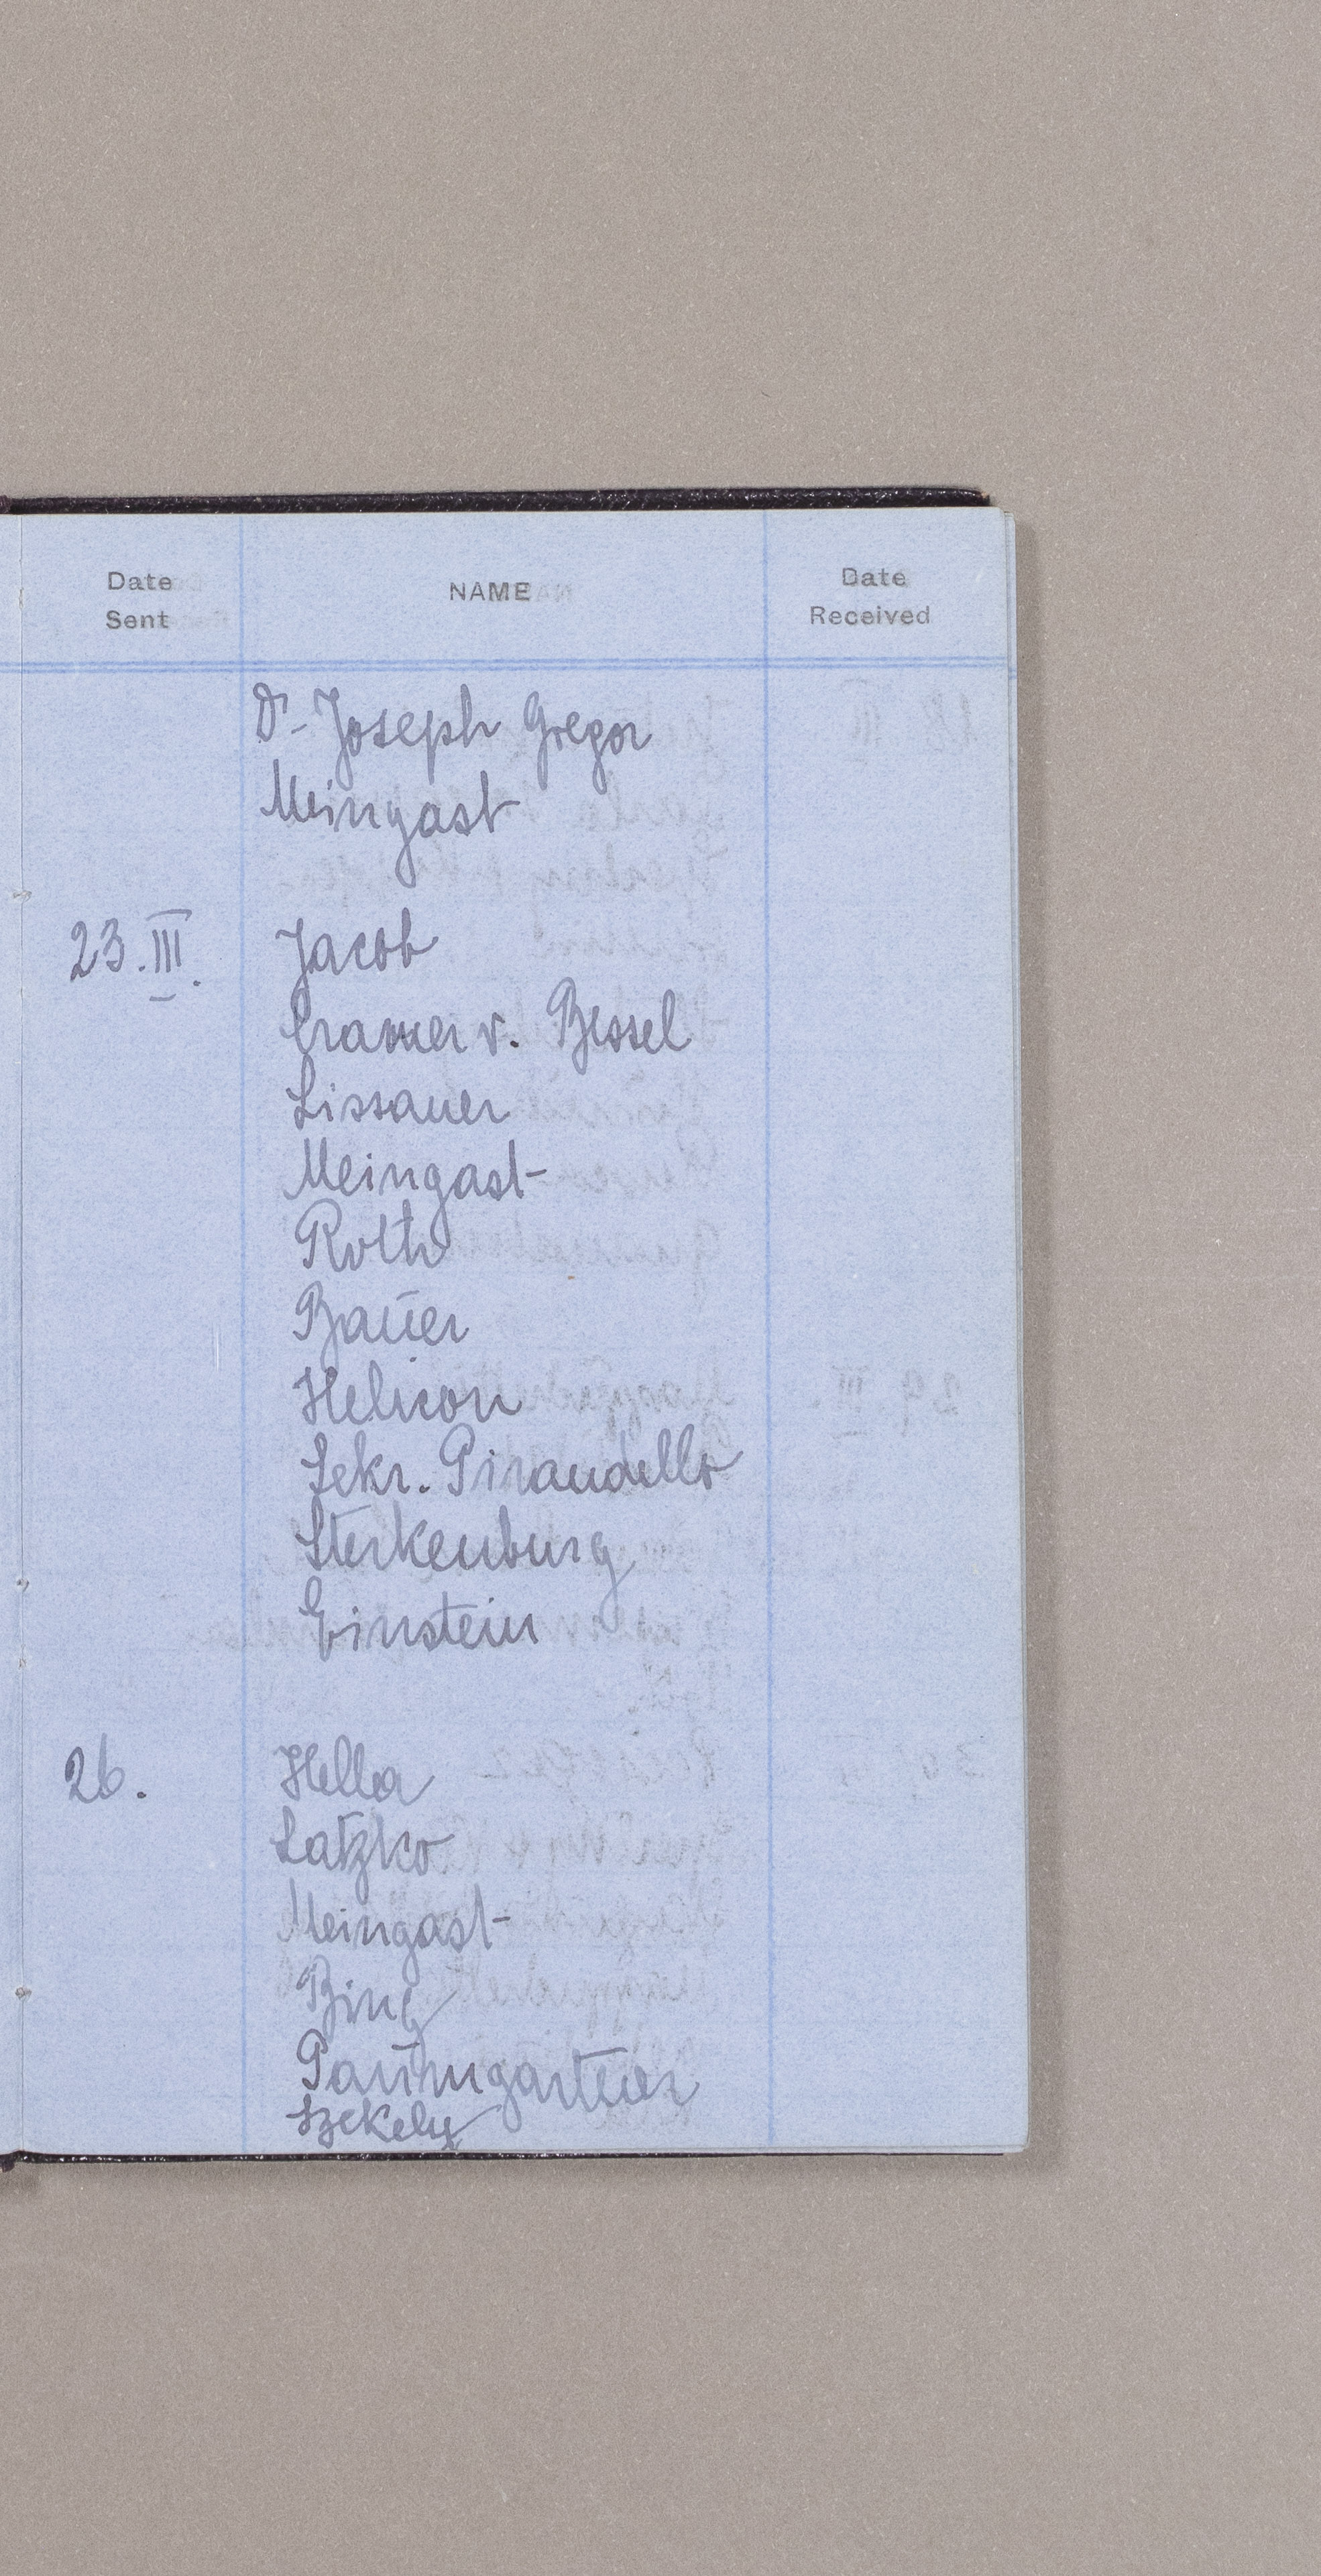 Date Sent NAME Date Received
Dr. Joseph Gregor
Meingast
23.III. Jacob
Cramer v. Bessel
Lissauer
Meingast
Roth
Bauer
Helicon
Sekr. Pirandello
Sterkenburg
Einstein
26. Hella
Latzko
Meingast
Bing
Paumgartner
Szekely